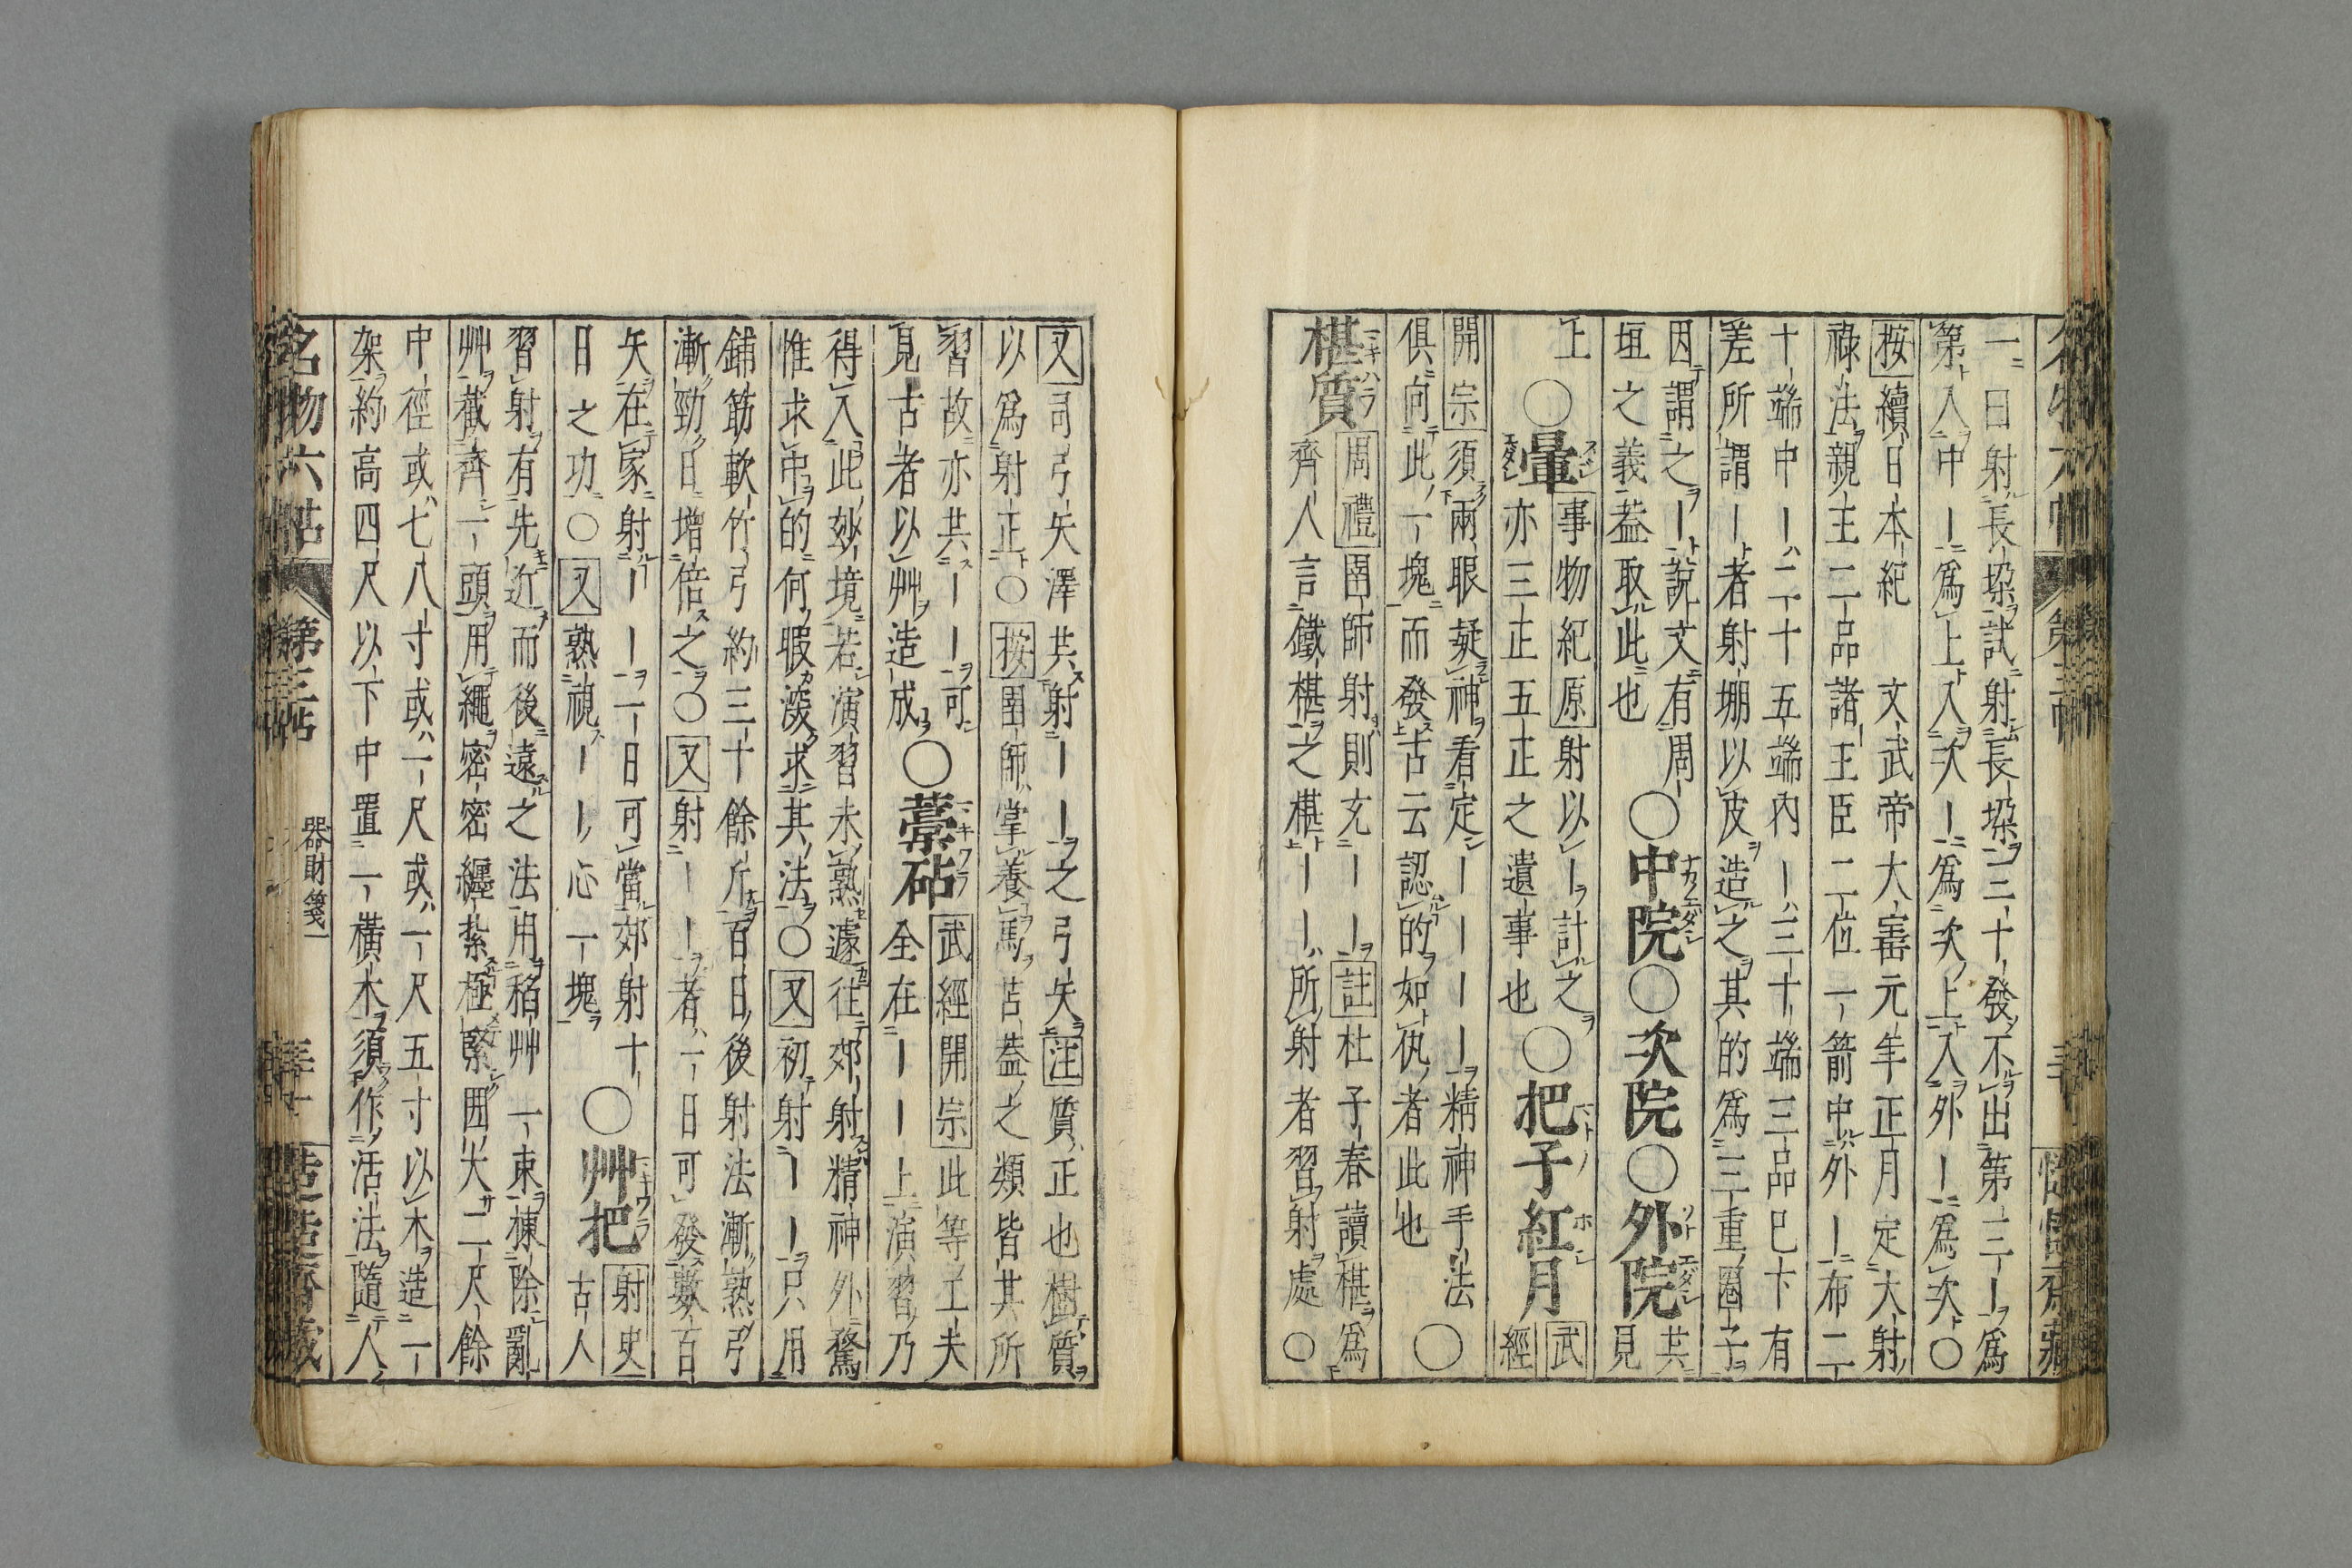 一曰射長垜試射長垜三十發不出第三ー爲
第入中ー爲上入次ー爲次上入外ー爲次○
按續日本紀 文武帝大寳元年正月定大射
祿法親王二品諸王臣二位一箭中外ー布二
十端中ー二十五端內ー三十端三品已下有
差所謂ー者射堋以皮造之其的爲三重圈子
因謂之ー說文有周
垣之義葢取此也
○中院○次院○外院
共
見
上
○暈
事物紀原射以ー計之
亦三正五正之遺事也
○把子紅月
武
經
開宗須兩眼凝神看定ーーーー精神手法
俱向此一塊而發古云認的如仇者此也
○
椹質
周禮圉師射則充ーー註杜子春讀椹爲
齊人言鐵椹之椹ーー所射者習射處○
又司弓矢澤共射ーー之弓矢注質正也樹質
以爲射正○按圉師掌養馬苫葢之類皆其所
習故亦共ーー可
見古者以艸造成
○藁砧
武經開宗此等工夫
全在ーー上演習乃
得入此玅境若演習未熟遽往郊射精神外騖
惟求中的何暇深求其法○又初射ーー只用
鋪筋軟竹弓約三十餘斤百日後射法漸熟弓
漸勁日增倍之○又射ーー者一日可發數百
矢在家射ーー一日可當郊射十
日之功○又熟視ーー心一塊
○艸把
射史
古人
習射有先近而後遠之法用稻艸一束揀除亂
艸截齊一頭用繩密密纏紮極緊囲大二尺餘
中徑或七八寸或一尺或一尺五寸以木造一
架約高四尺以下中置一橫木須作活法隨人
名物六帖 第三帖 器財箋一